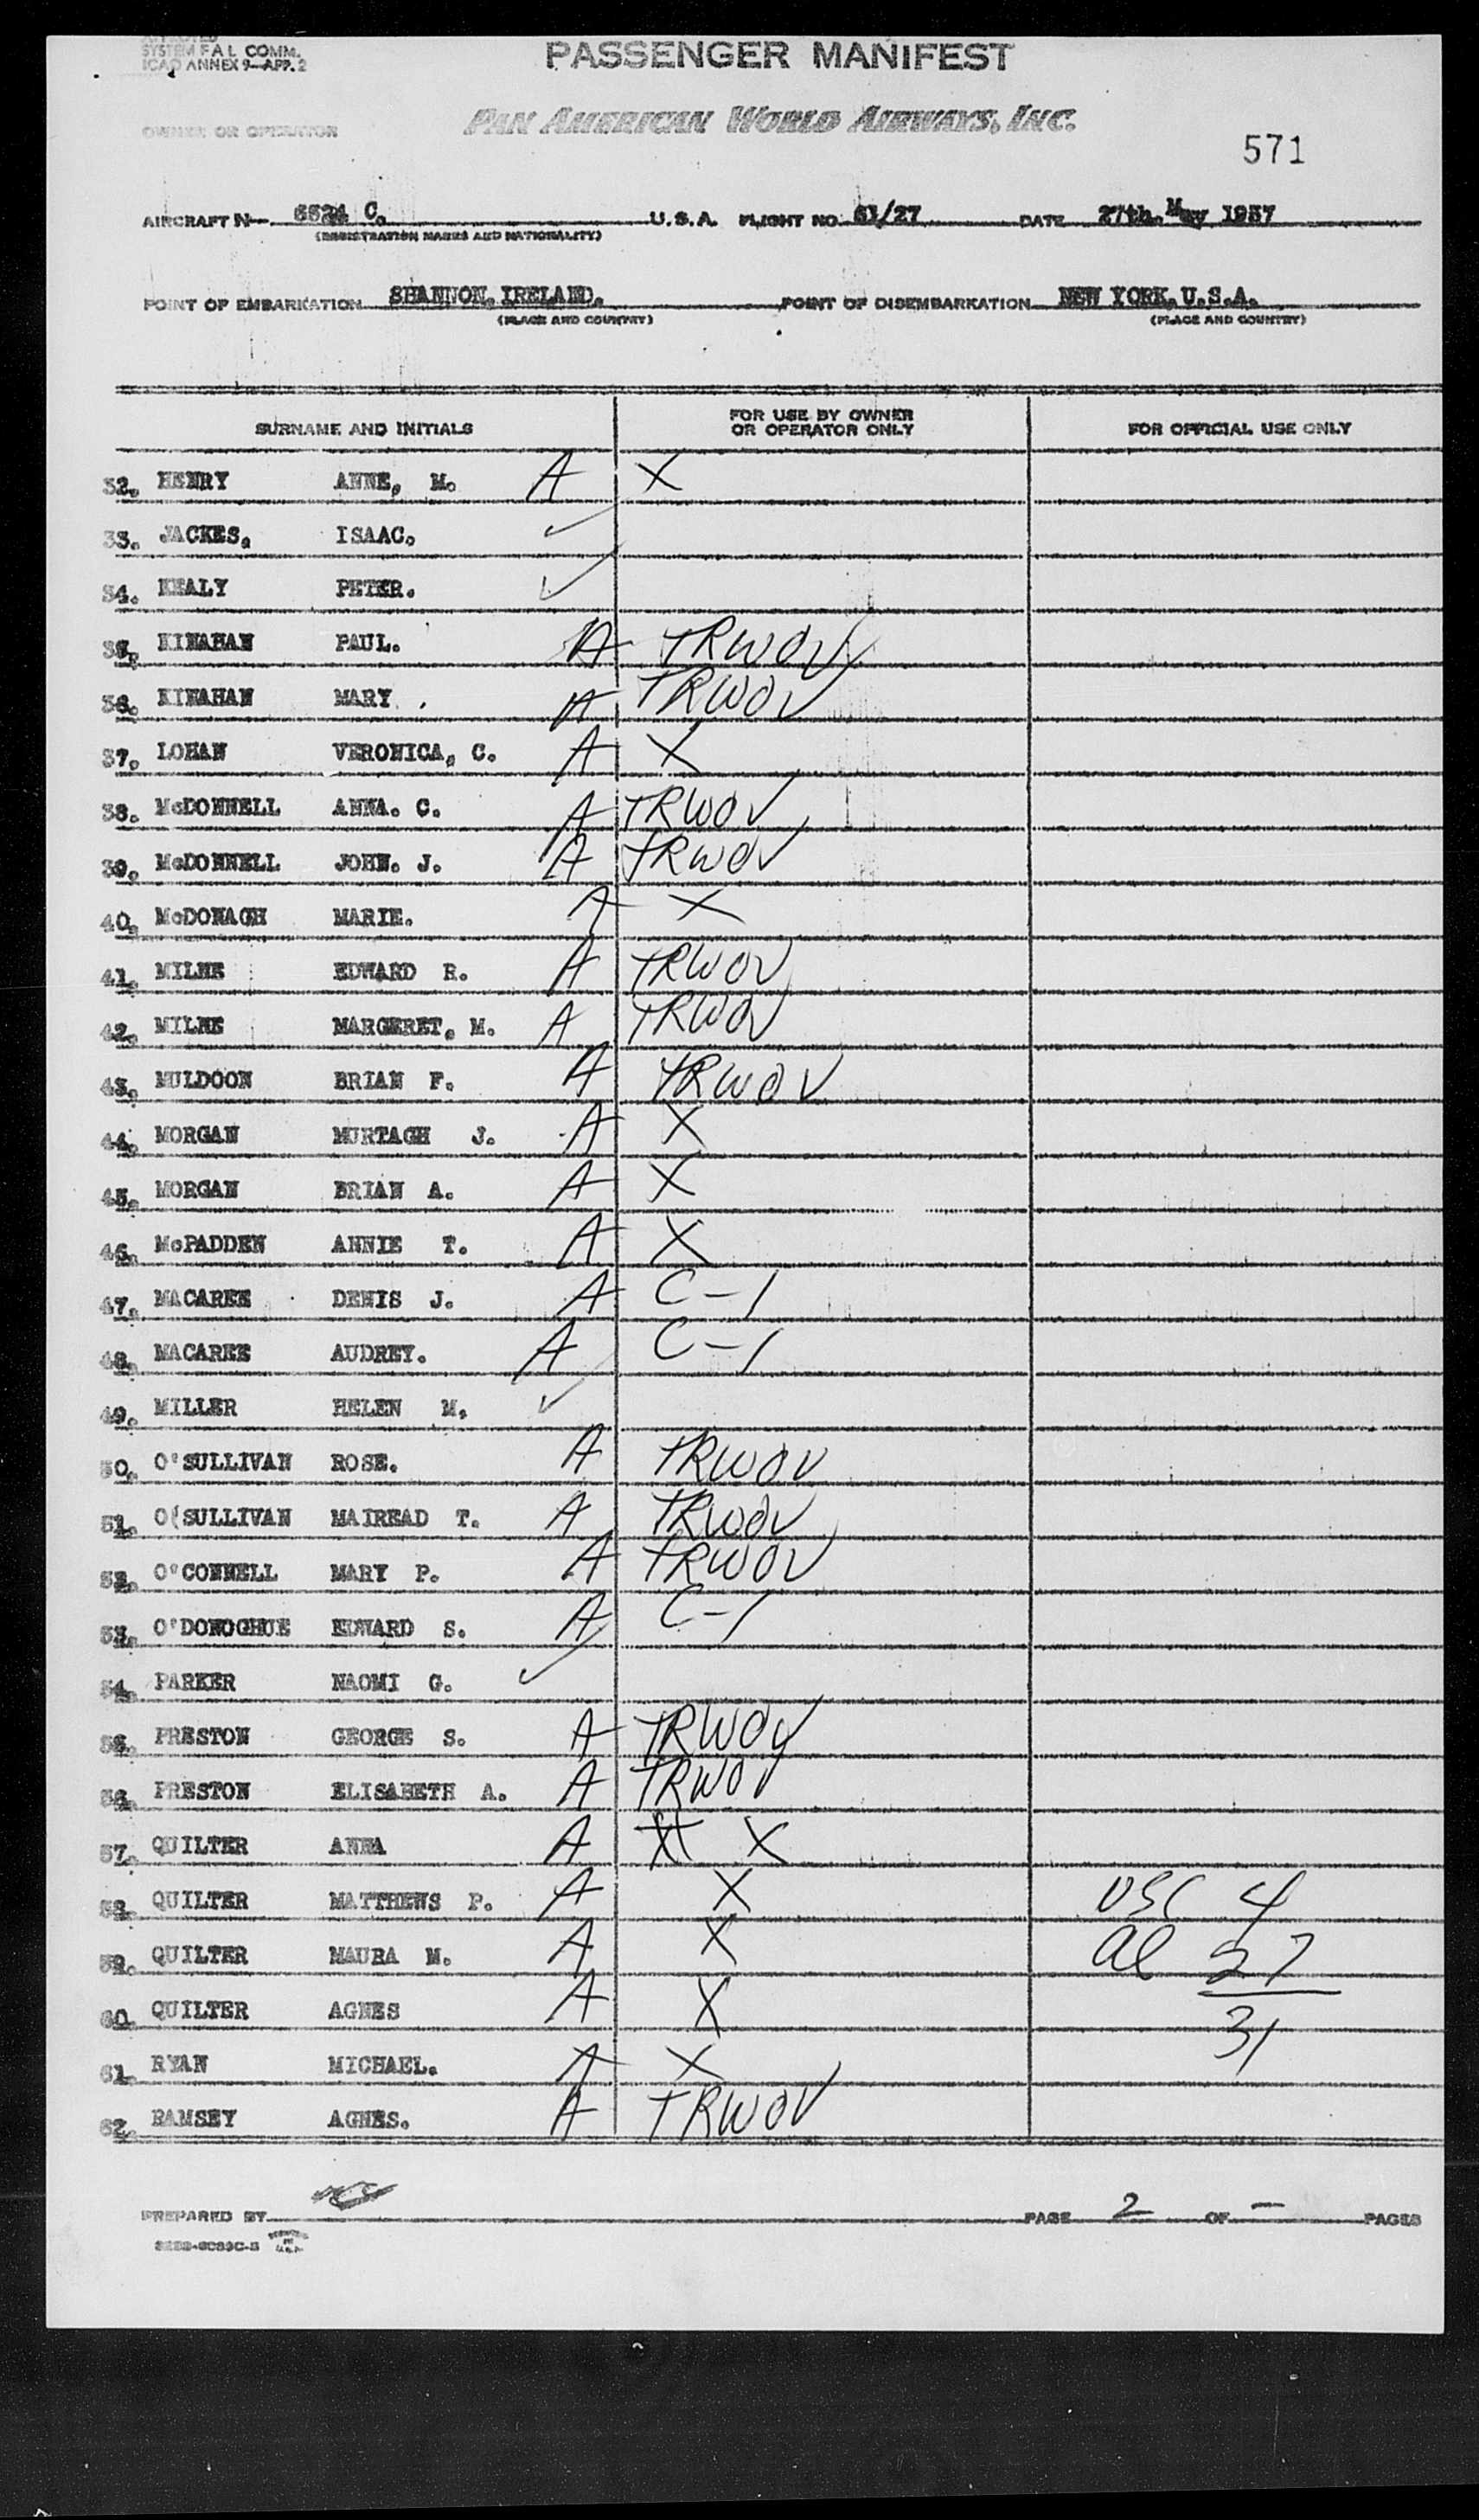 SYSTEM FAL COMM.
ICAO ANNEX 9-APP. 2
PASSENGER MANIFEST
OWNER OR OPERATOR
PAN AMERICAN WORLD AIRWAYS, INC.
571
AIRCRAFT N- 6524 C. U.S.A. FLIGHT NO. 61/27 DATE 27th. May 1957
(REGISTRATION MARKS AND NATIONALITY)
POINT OF EMBARKATION SHANNON. IRELAND. POINT OF DISEMBARKATION NEW YORK. U.S.A.
(PLACE AND COUNTRY) (PLACE AND COUNTRY)
SURNAME AND INITIALS FOR USE BY OWNER OR OPERATOR ONLY FOR OFFICIAL USE ONLY
32. HENRY ANNE, M. A X
33. JACKES, ISAAC. ✓
34. KEALY PETER. ✓
35. KINAHAN PAUL. A TRWOV
36. KINAHAN MARY . A TRWOV
37. LOHAN VERONICA, C. A X
38. McDONNELL ANNA. C. A TRWOV
39. McDONNELL JOHN. J. A TRWOV
40. McDONAGH MARIE. A X
41. MILNE EDWARD R. A TRWOV
42. MILNE MARGERET, M. A TRWOV
43. MULDOON BRIAN F. A TRWOV
44. MORGAN MURTAGH J. A X
45. MORGAN BRIAN A. A X
46. McPADDEN ANNIE T. A X
47. MACAREE DENIS J. A C-1
48. MACAREE AUDREY. A C-1
49. MILLER HELEN M. ✓
50. O'SULLIVAN ROSE. A TRWOV
51. O(SULLIVAN MAIREAD T. A TRWOV
52. O'CONNELL MARY P. A TRWOV
53. O'DONOGHUE EDWARD S. A C-1
54. PARKER NAOMI G. ✓
55. PRESTON GEORGE S. A TRWOV
56. PRESTON ELISABETH A. A TRWOV
57. QUILTER ANNA A X
58. QUILTER MATTHEWS P. A X USC 4
59. QUILTER MAURA M. A X al 27
60. QUILTER AGNES A X 31
61. RYAN MICHAEL. A X
62. RAMSEY AGNES. A TRWOV
PREPARED BY PAGE 2 OF - PAGES